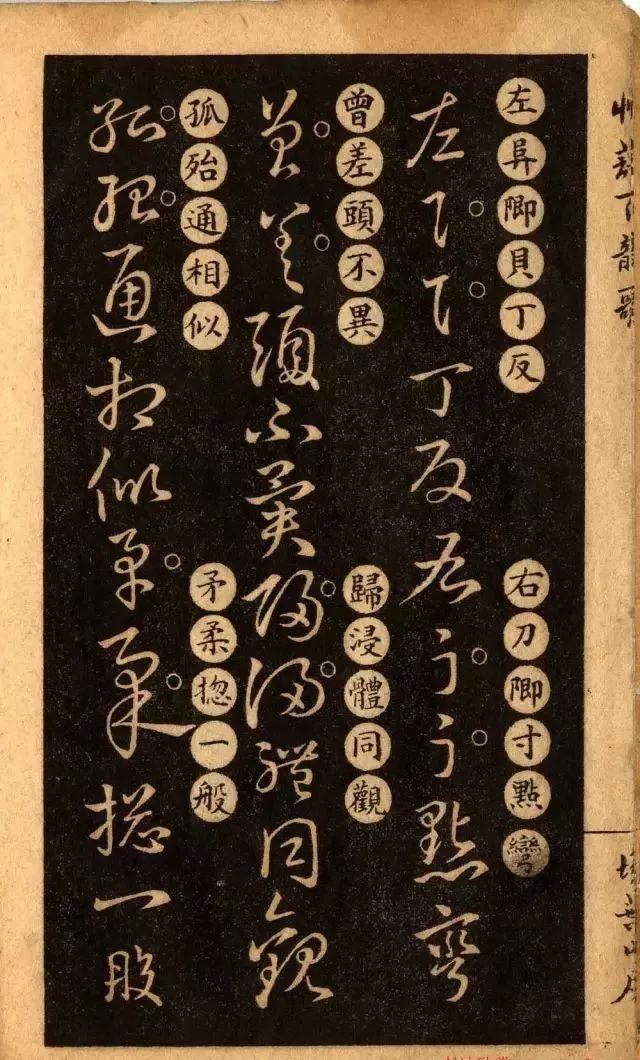 草訣百韻歌
掃葉山房
左阜即貝丁反
右刀即寸點彎
左阜貝丁反右刀寸點彎
曾差頭不異
歸浸體同觀
曾差頭不異歸浸體同觀
孤殆通相似
矛柔揔一般
孤殆通相似矛柔揔一般